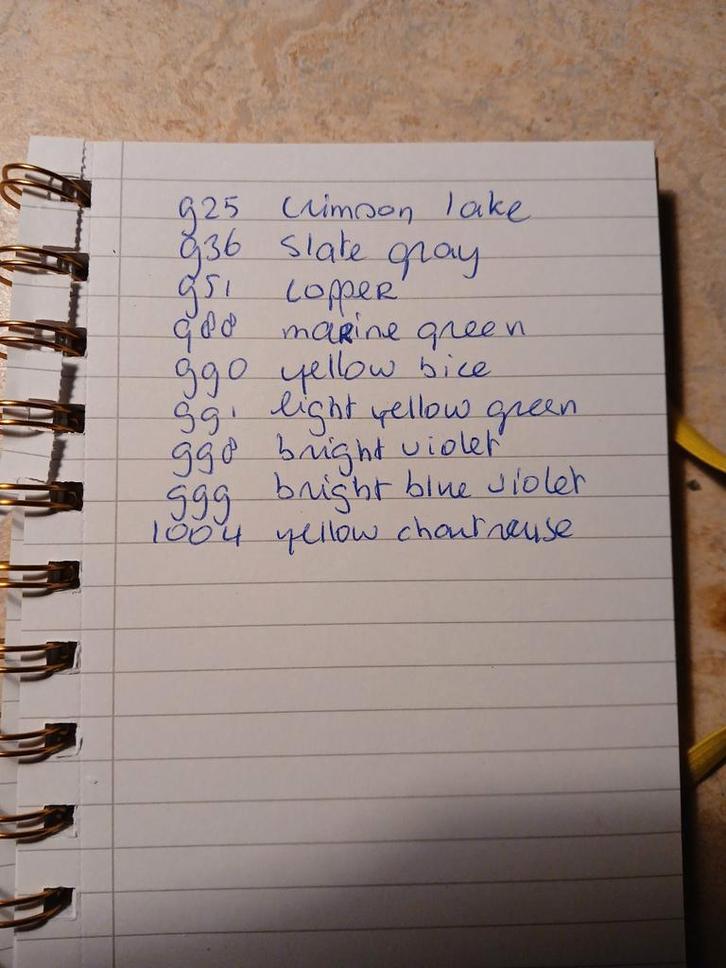 925 crimson lake
936 slate gray
951 copper
988 marine green
990 yellow bice
991 light yellow green
998 bright violet
999 bright blue violet
1004 yellow chartreuse